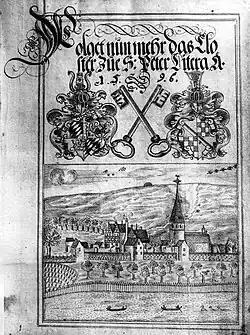 Volget nun mehr das Clo
ster Zue S: Peter Litera A.
1 5 9 6.